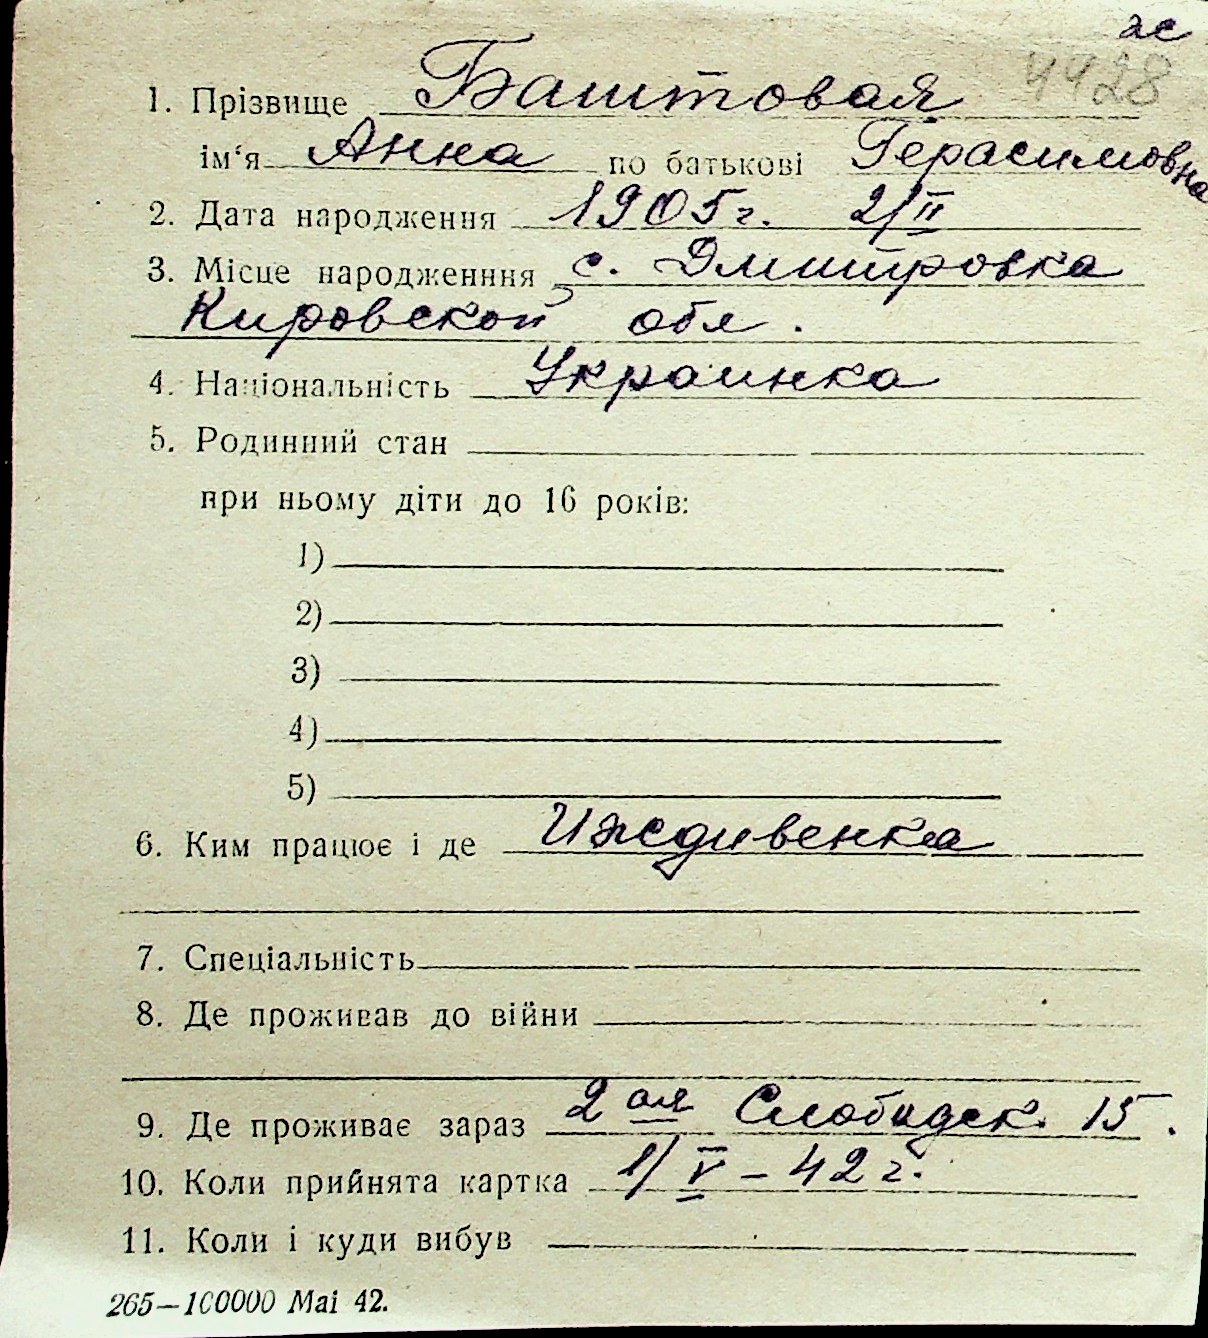 ж
4428
1. Прізвище Баштовая
ім‘я Анна по батькові Герасимовна
2. Дата народження 1905г. 2/II
3. Місце народженння с. Дмитровка
Кировской обл.
4. Національність Украинка
5. Родинний стан
при ньому діти до 16 років:
1)
2)
3)
4)
5)
6. Ким працює і де Иждивенка
7. Спеціальність
8. Де проживав до війни
9. Де проживає зараз 2 ая Слободск. 15.
10. Коли прийнята картка 1/V – 42 г.
11. Коли і куди вибув
265—100000 Mai 42.